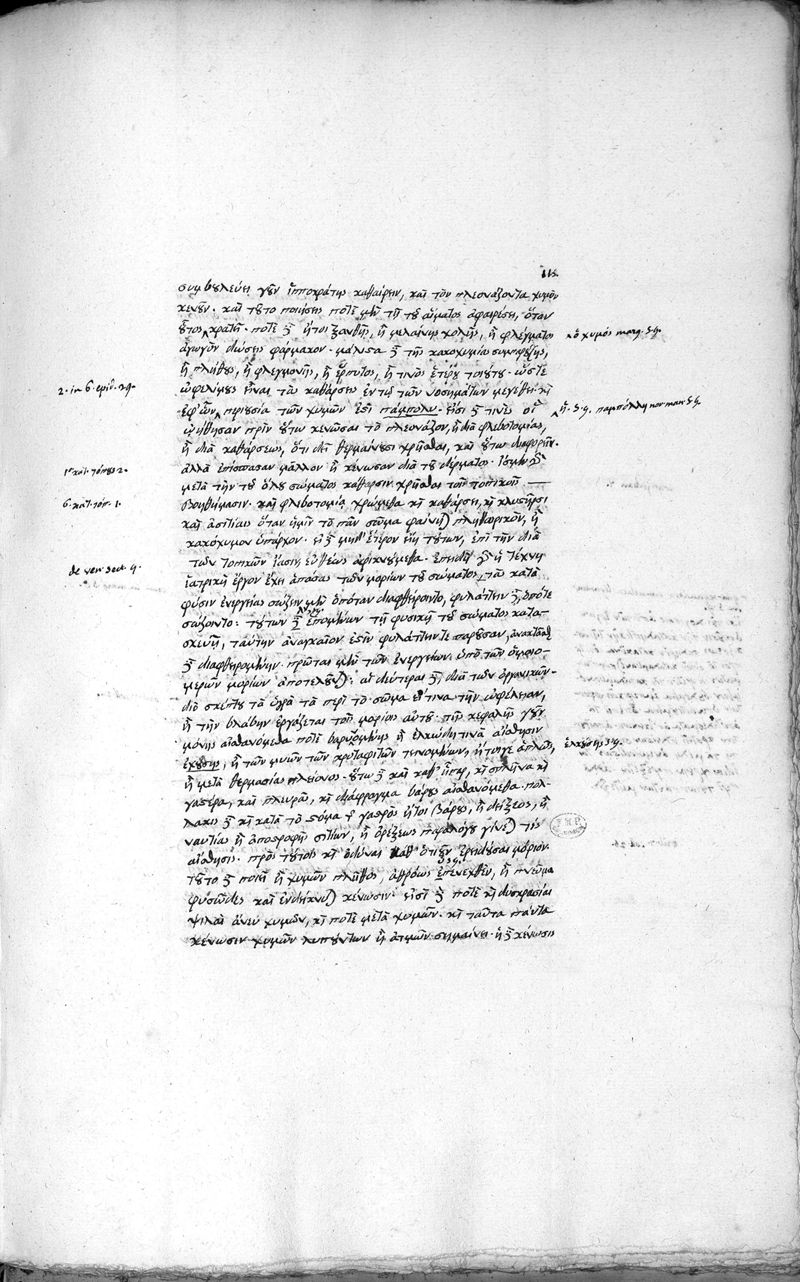 118.
συμβουλεύει γοῦν ἱπποκράτης καθαίρειν, καὶ τὸν πλεονάζοντα χυμὸν
κενοῦν. καὶ τοῦτο ποιήσεις ποτὲ μὲν τῇ τοῦ αἵματος ἀφαιρέσει, ὅταν
οὗτος κρατῇ. ποτὲ δὲ ἤτοι ξανθῆς, ἢ μελαίνης χολῆς, ἢ φλέγματος
ἀγωγὸν διδοὺς φάρμακον. μάλιστα δὲ τῆς κακοχυμίας
ἢ πλήθους, ἢ φλεγμονῆς, ἢ ἕρπητος, ἢ τινος ἑτέρου τοιούτου. ὥστε
ὠφελίμους εἶναι τὰς καθάρσεις ἐν τῷ τῶν νοσημάτων μεγέθει. καὶ
ἐφ' ὧν περιουσία τῶν χυμῶν ἐστι πάμπολυ. εἰσὶ δέ τινες οἳ
ᾠήθησαν πρὶν οὕτω κενῶσαι τὸ πλεονάζον, ἢ διὰ φλεβοτομίας,
ἢ διὰ καθάρσεως, ὅτι δεῖ θερμαίνουσι χρῆσθαι, καὶ οὕτω διαφορεῖν.
ἀλλὰ ἐπίσπασαν μᾶλλον ἢ κένωσαν διὰ τοῦ δέρματος. ἴσμεν γὰρ
μετὰ τὴν τοῦ ὅλου σώματος κάθαρσιν χρῆσθαι τοῖς τοπικοῖς
βοηθήμασιν. καὶ φλεβοτομίᾳ χρώμεθα καὶ καθάρσει, καὶ κλυστῆρσι
καὶ ἀσιτίαις ὅταν ἡμῖν τὸ πᾶν σῶμα φαίνηται πληθωρικὸν, ἢ
κακόχυμον ὑπάρχον. εἰ δὲ μηδέτερον εἴη τούτων, ἐπὶ τὴν διὰ
τῶν τοπικῶν ἴασιν εὐθέως ἀφικνούμεθα. ἐπειδὴ γὰρ ἡ τέχνη
ἰατρικὴ ἔργον ἔχει ἁπάσας τῶν μορίων τοῦ σώματος, τὰς κατὰ
φύσιν ἐνεργείας σώζειν μὲν ὁπόταν διαφθείροιντο, φυλάττειν δὲ ὁπότε
σώζοιντο. τούτων δὲ ἑπομένων τῇ φυσικῇ τοῦ σώματος κατα-
σκευῇ, ταύτην ἀναγκαῖον ἐστὶν φυλάττειν τε παροῦσαν, ἀνακτᾶσθαι
δὲ διαφθειρομένην. πρῶται μὲν τῶν ἐνεργειῶν ὑπὸ τῶν ὁμοιο-
μερῶν μορίων ἀποτελοῦνται. αἱ δεύτεραι δὲ, διὰ τῶν ὀργανικῶν.
διὸ σκέπτου τὰ ὑγρὰ τὰ περὶ τὸ σῶμα εἴ τινα τὴν ὠφέλειαν,
ἢ τὴν βλάβην ἐργάζεται τοῖς μορίοις αὐτοῦ. τῆς κεφαλῆς γοῦν
μόνης αἰσθανόμεθα ποτὲ βαρυνομένης ἢ ἑλκώδη τινὰ αἴσθησιν
ἐχούσης, ἢ τῶν μυῶν τῶν κροταφιτῶν τεινομένων, ἤτοι γε ἁπλῶς,
ἢ μετὰ θερμασίας πλείονος. οὕτω δὲ καὶ καθ' ἧπαρ, καὶ σπλῆνα καὶ
γαστέρα, καὶ πλευρὰς, καὶ διάφραγμα βάρους αἰσθανόμεθα πολ-
λάκις δὲ καὶ κατὰ τὸ στόμα τῆς γαστρὸς ἤτοι βάρους, ἢ δήξεως, ἢ
ναυτίας ἢ ἀποστροφῆς σιτίων, ἢ ὀρέξεως παραλόγου γίνεταί τις
αἴσθησις. πρὸς τούτοις καὶ ὀδύναι καθ' ὁτιοῦν ἐρείδουσαι μόριον.
τοῦτο δὲ ποιεῖ ἢ χυμῶν πλῆθος, ἀθρόως ἐπενεχθὲν, ἢ πνεῦμα
φυσῶδες καὶ ἐνδείκνυται κένωσιν. εἰσὶ δὲ ποτὲ καὶ δυσκρασίαι
ψιλαὶ ἄνευ χυμῶν, καὶ ποτὲ μετὰ χυμῶν. καὶ ταῦτα πάντα
κένωσιν χυμῶν λυπούντων ἢ ἀτμῶν σημαίνει. ἡ δὲ κένωσις
ὁ χυμὸς marg. 5g.
2. in 6. epid. 29.
ἢ. 5g. παμπόλλη non marg 5g.
1 κατ. τόπους 2.
6. κατ. τόπ. 1.
de ven. sect. 9.
ἑλκούσης 5g.